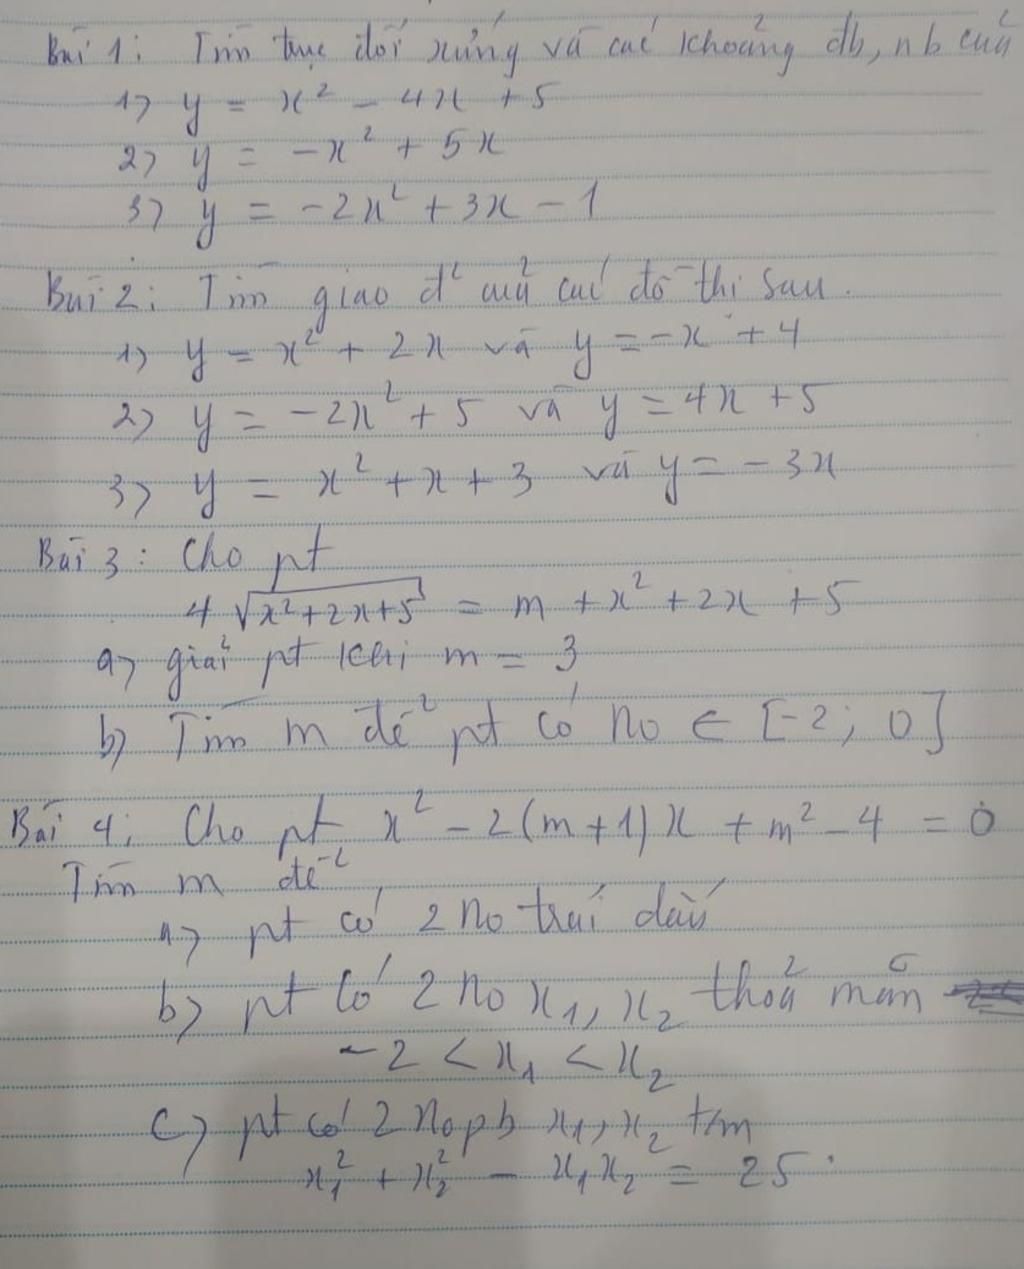 Bài 1: Tìm trục đối xứng và các khoảng đb, nb của
1) y = x² - 4x + 5
2) y = -x² + 5x
3) y = -2x² + 3x - 1
Bài 2: Tìm giao đ² của các đồ thị sau.
1) y = x² + 2x và y = -x + 4
2) y = -2x² + 5 và y = 4x + 5
3) y = x² + x + 3 và y = -3x
Bài 3: Cho pt
4√(x²+2x+5) = m + x² + 2x + 5
a) giải pt khi m = 3
b) Tìm m để pt có no ∈ [-2; 0]
Bài 4: Cho pt x² - 2(m+1)x + m² - 4 = 0
Tìm m để
a) pt có 2 no trái dấu
b) pt có 2 no x₁, x₂ thoả mãn
-2 < x₁ < x₂
c) pt có 2 no pb x₁, x₂ t/m
x₁² + x₂² - x₁x₂ = 25.